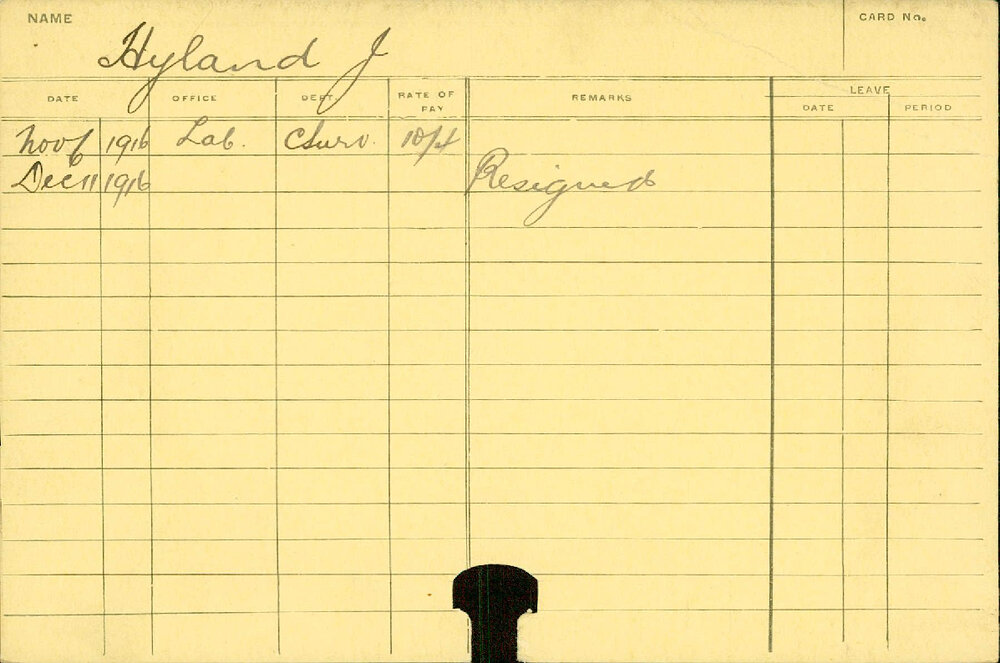 NAME
CARD No.
Hyland J
DATE OFFICE DEPT. RATE OF PAY REMARKS LEAVE
DATE PERIOD
Nov 6 1916 Lab. CSurv. 10/4
Dec 11 1916 Resigned